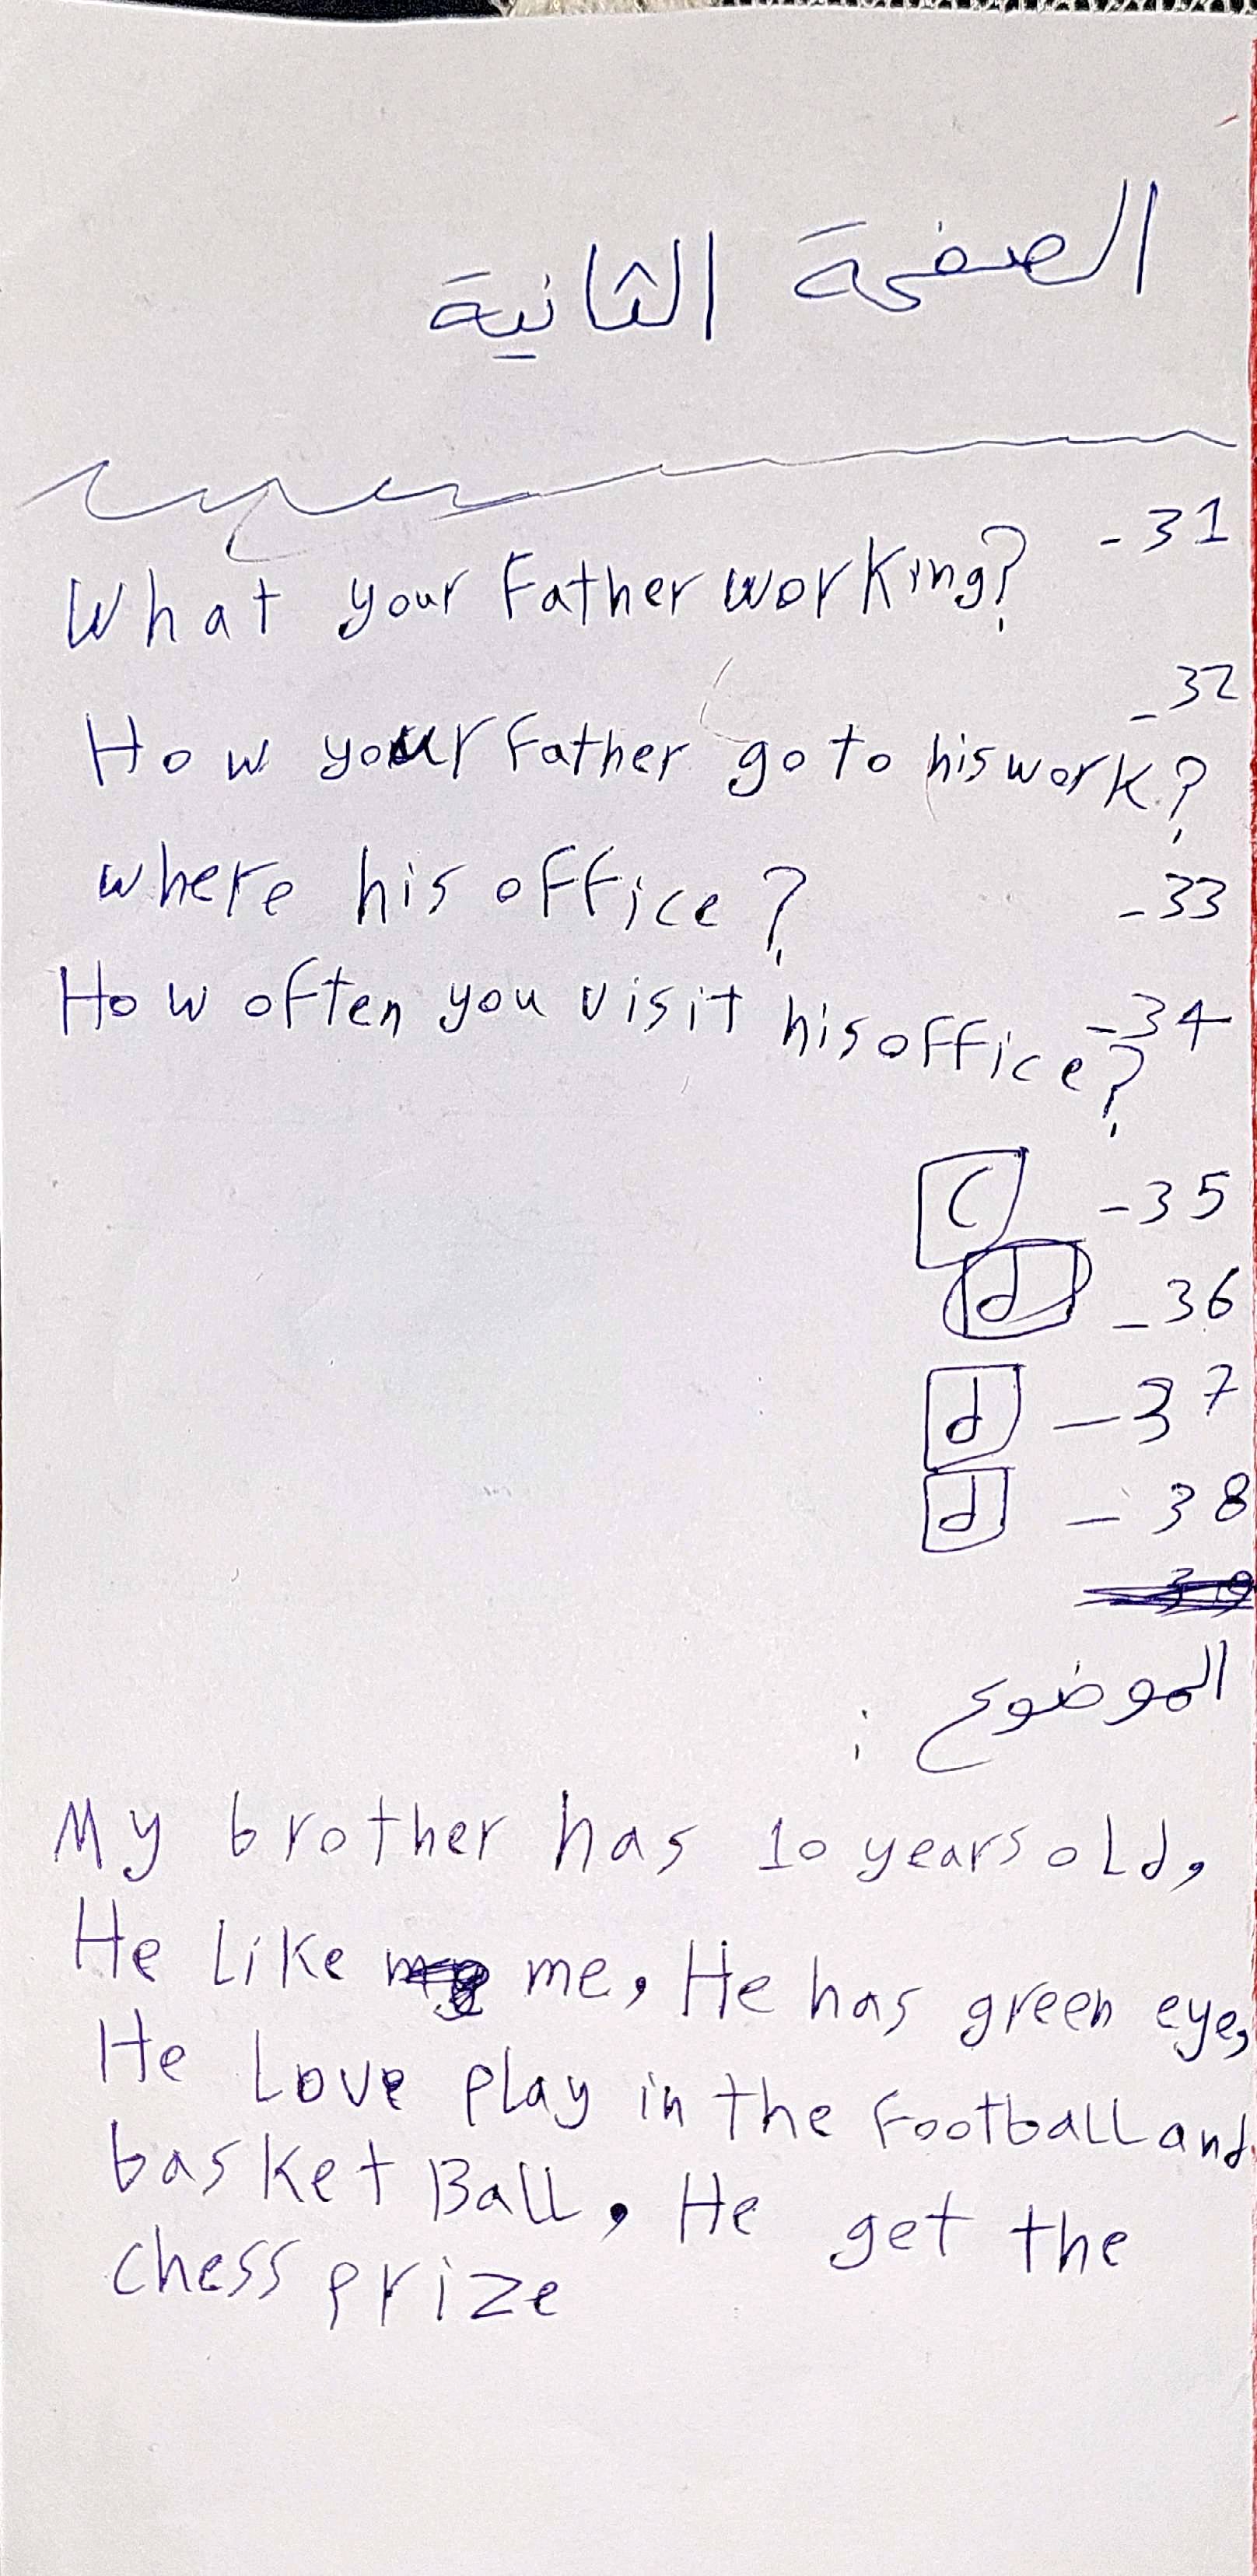 الصفحة الثانية
-31
What your Father working?
-32
How your Father go to his work?
where his office? -33
How often you visit his office? -34
C -35
d -36
d -37
d -38
الموضوع :
My brother has 10 years old,
He Like me, He has green eye,
He Love play in the Football and
basket Ball, He get the
chess prize